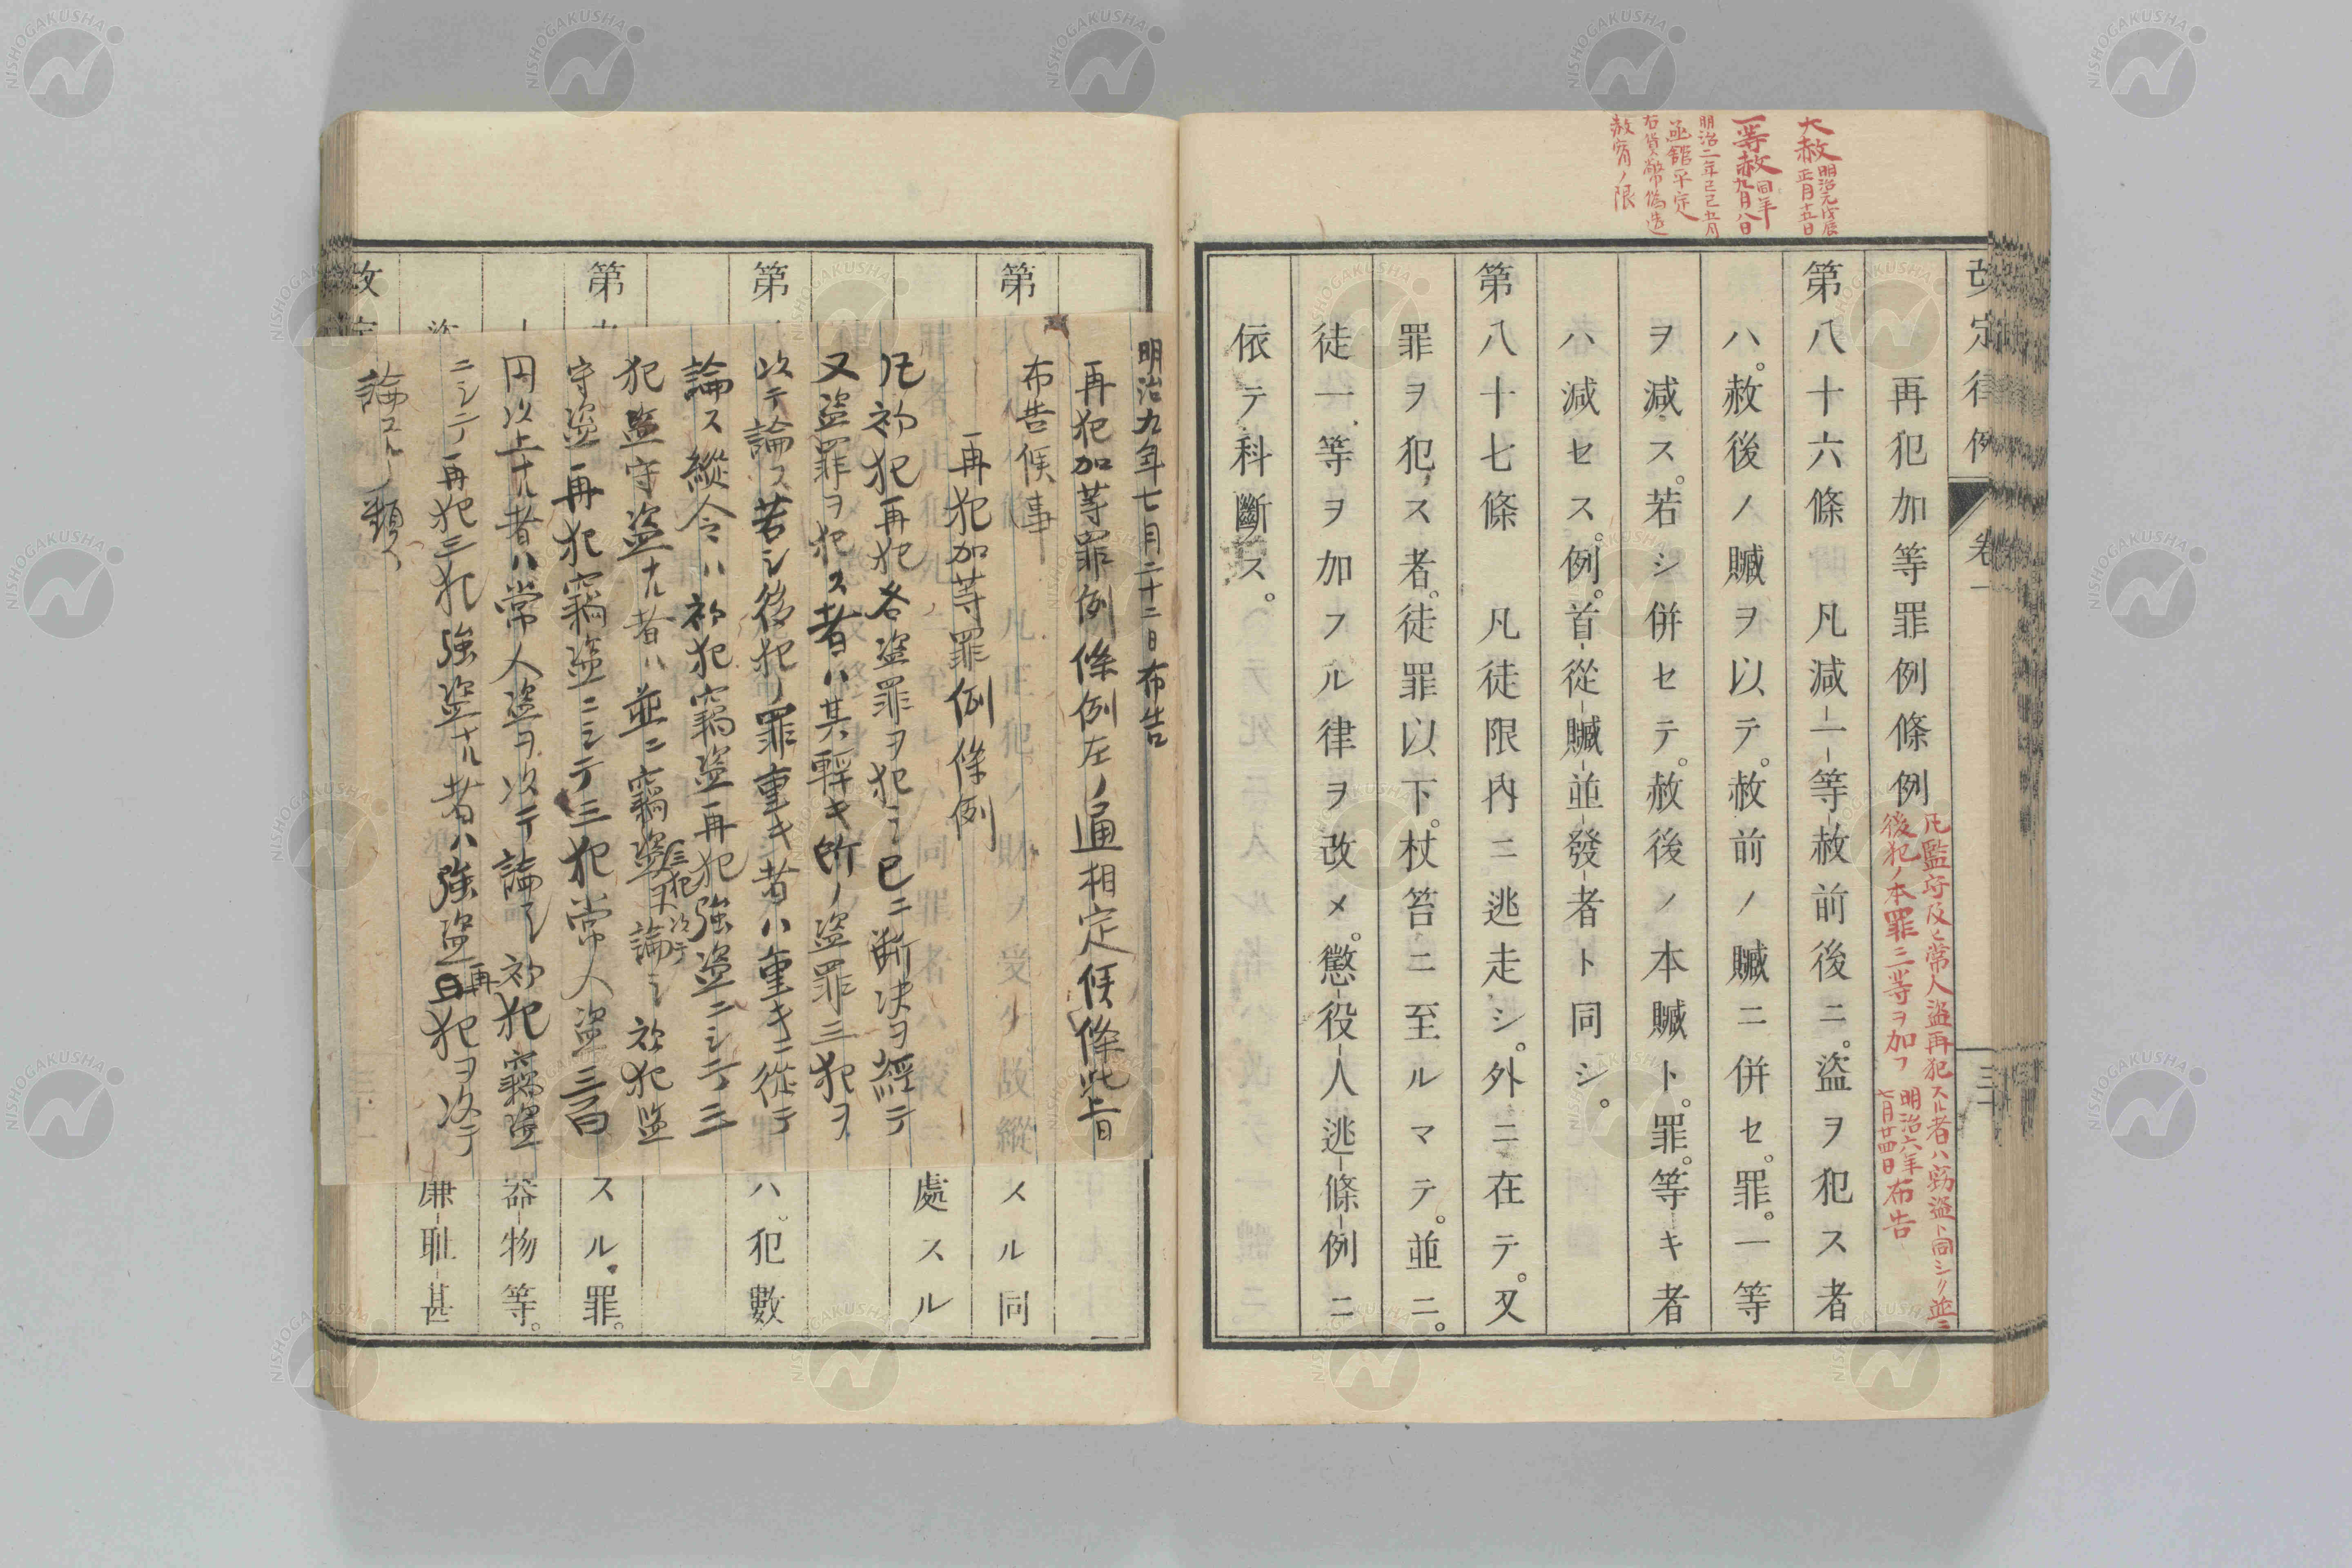 大赦明治元戊辰正月十五日
一等赦同年九月八日
明治二年己巳五月
函館平定
右貨幣偽造
赦宥ノ限
改定律例 卷一 三十
再犯加等罪例條例
凡監守及ヒ常人盜再犯スル者ハ窃盜ト同シク並ニ
後犯ノ本罪ニ二等ヲ加フ 明治六年七月廿四日布告
第八十六條 凡減一等赦前後ニ。盜ヲ犯ス者
ハ。赦後ノ贓ヲ以テ。赦前ノ贓ニ併セ。罪。一等
ヲ減ス。若シ併セテ。赦後ノ本贓ト。罪。等キ者
ハ減セス。例。首從贓並發者ト同シ。
第八十七條 凡徒限内ニ逃走シ。外ニ在テ。又
罪ヲ犯ス者。徒罪以下。杖笞ニ至ルマテ。並ニ。
徒一等ヲ加フル律ヲ改メ。懲役人逃條例ニ
依テ科斷ス。
明治九年七月二十二日布告
再犯加等罪例條例左ノ通相定候條此旨
布告候事
再犯加等罪例條例
凡初犯再犯各盜罪ヲ犯シ已ニ断決ヲ經テ
又盜罪ヲ犯ス者ハ其輕キ所ノ盜罪三犯ヲ
以テ論ス若シ後犯ノ罪重キ者ハ重キニ從テ
論ス縱令ハ初犯竊盜再犯強盜ニシテ三
犯監守盜ナル者ハ並ニ竊盜三犯ヲ以テ論シ初犯監
守盜再犯竊盜ニシテ三犯常人盜三百
円以上ナル者ハ常人盜ヲ以テ論シ初犯竊盜
ニシテ再犯三犯強盜ナル者ハ強盜再犯ヲ以テ
論スルノ類
第
メル同
處スル
第
ハ。犯數
第
スル。罪。
器物等。
廉耻甚
改